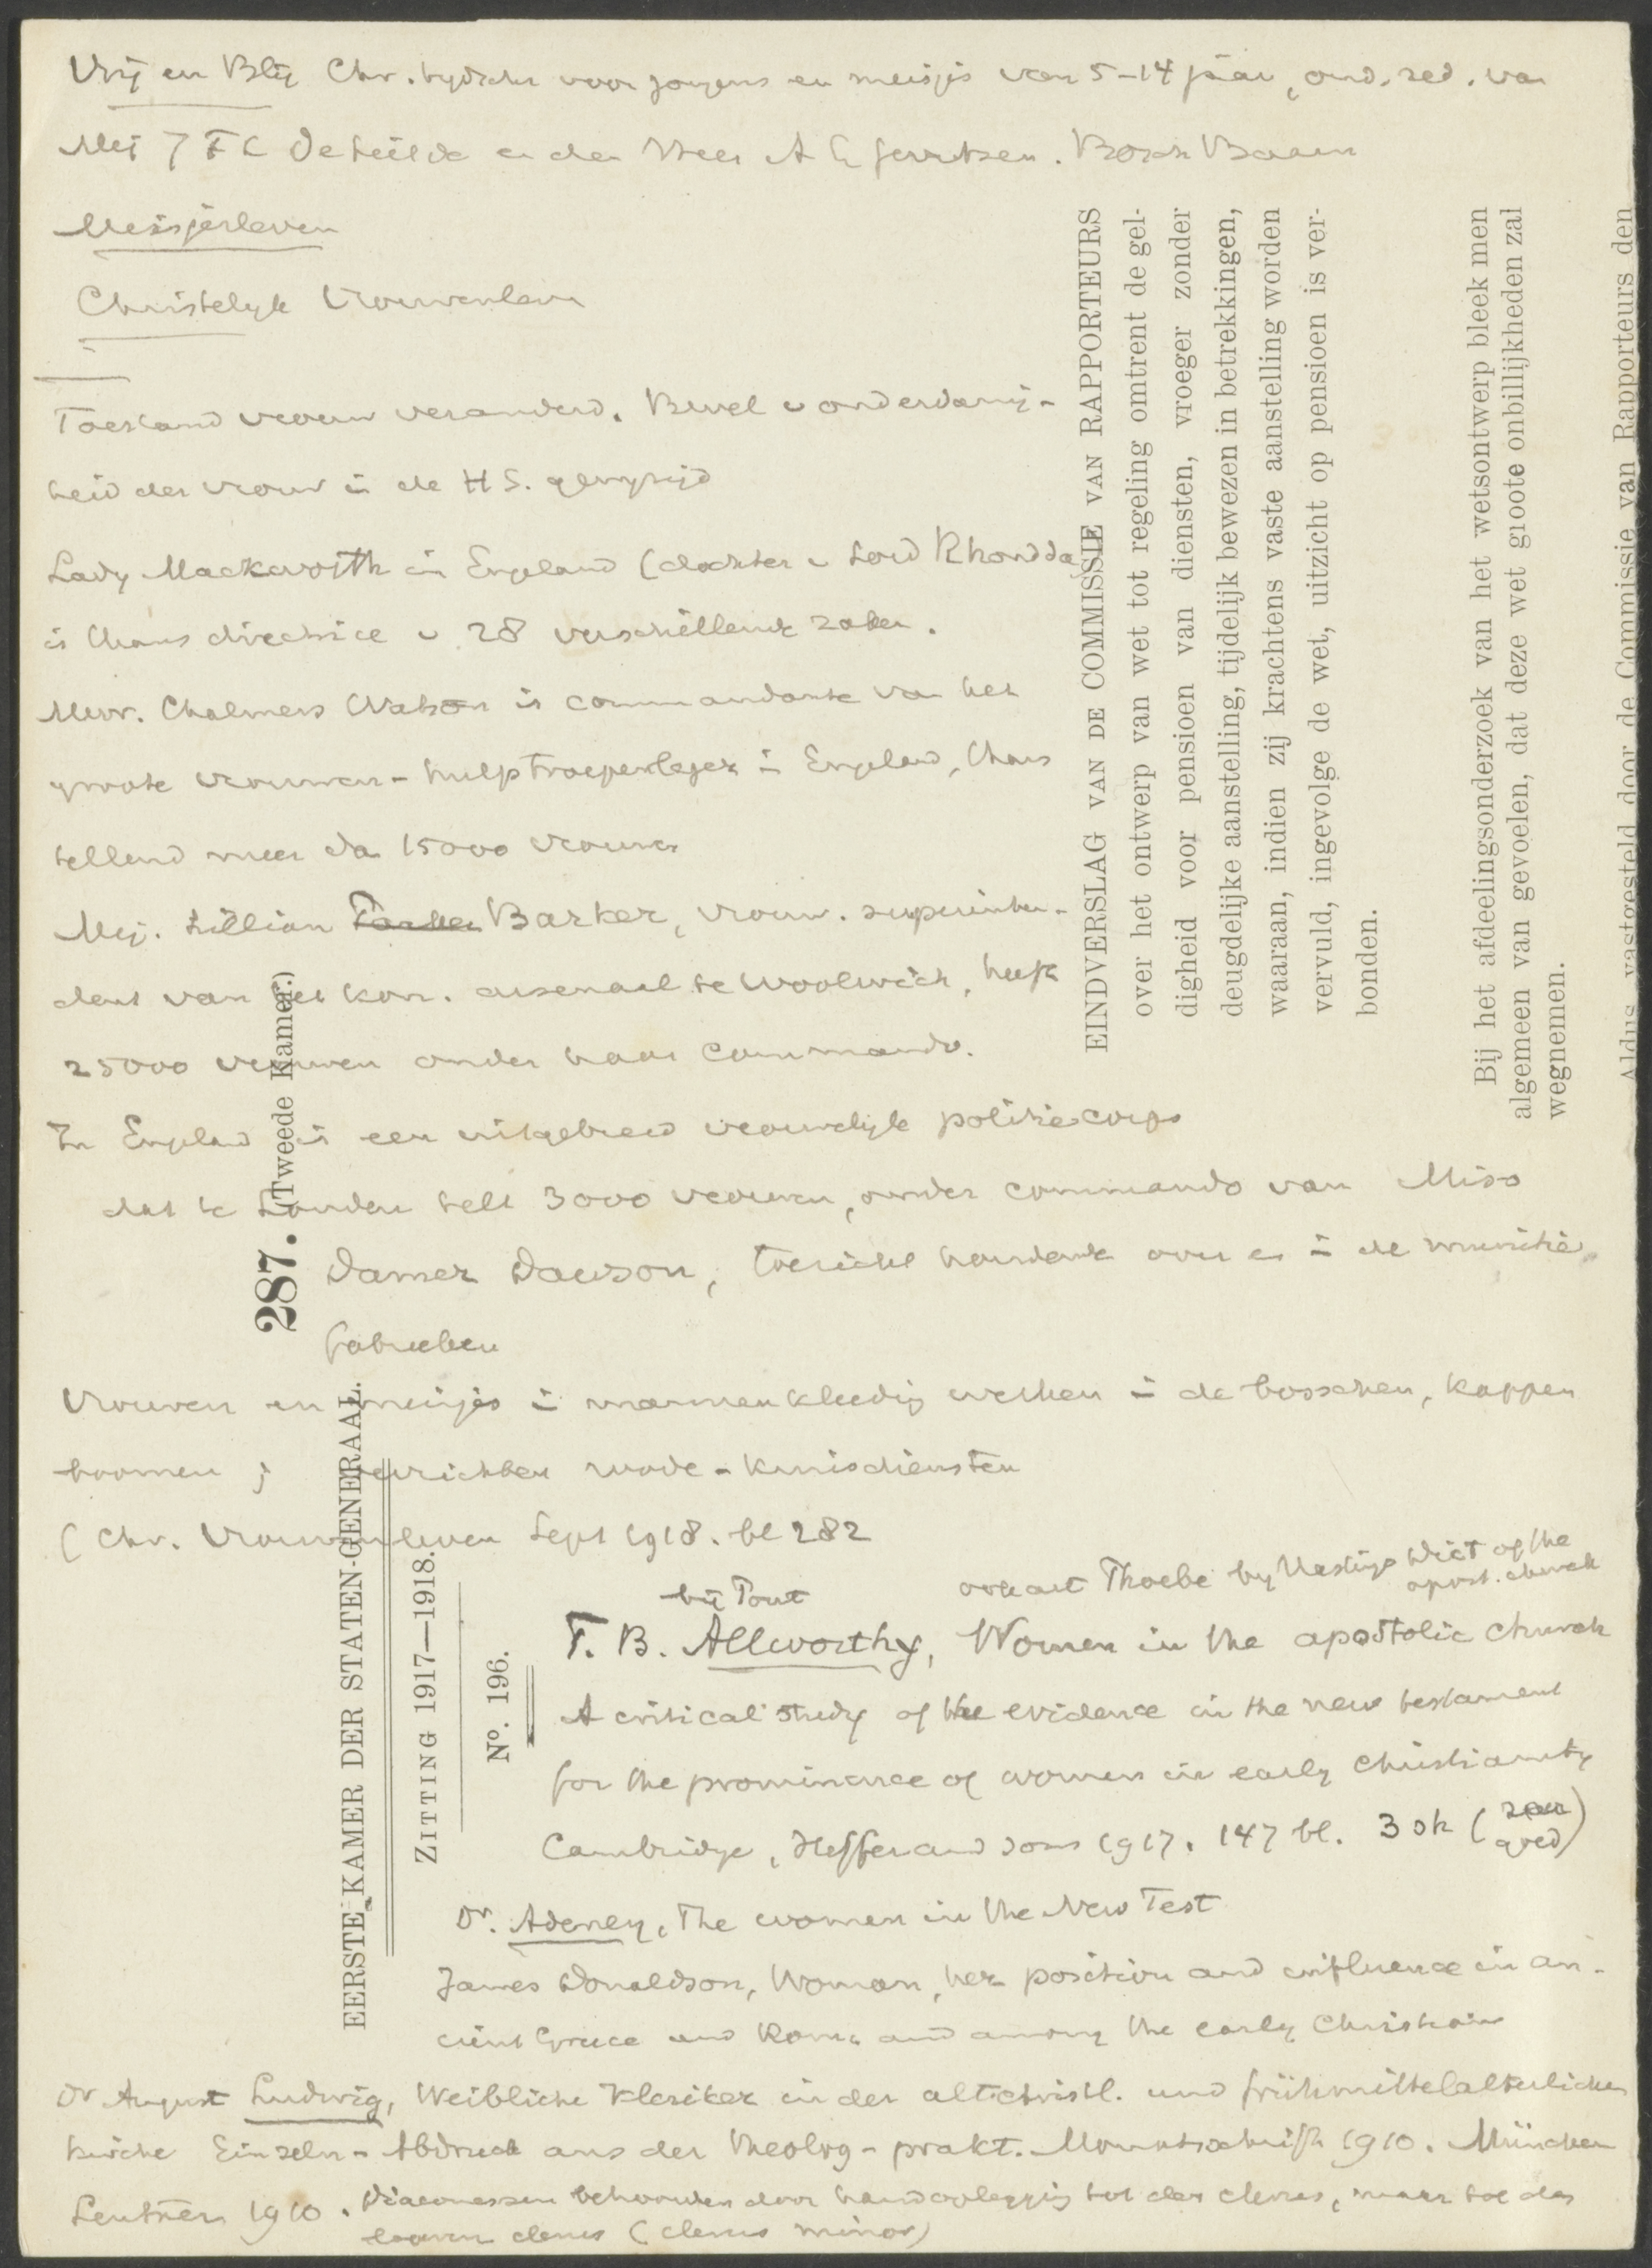 Vrij en Blij Chr. tijdschr voor jongens en meisjes van 5-14 jaar, ond. red. van
Mej J F C De en den Heer A G Gerritsen. Bosch Baarn
Meisjesleven
Christelijk Vrouwenleven
Toestand vrouw veranderd. Bevel v onderdanig-
heid der vrouw in de H S. gewijzigd
Lady Mackworth in Engeland (dochter v Lord Rhondda)
is thans directrice v 28 verschillende zaken.
Mevr. Chalmers Watson is commandante van het
groote vrouwen-hulptroepenleger in Engeland, thans
tellend meer dan 15000 vrouwen
Mej. Lillian Barker, vrouw. superinten-
dent van het kon. arsenaal te Woolwich, heeft
25000 vrouwen onder haar commando.
In Engeland is een uitgebreid vrouwelijk politiecorps
dat te Londen telt 3000 vrouwen, onder commando van Miss
Damer Dawson, toezicht houdende over en in de munitie
fabrieken
Vrouwen en meisjes in mannenkleedij werken in de bosschen, kappen
boomen ; verrichten roode-kruisdiensten
(Chr. Vrouwenleven Sept 1918. bl 282
bij Pont
ook art Phoebe by Hastings Dict of the
apost. church
T. B. Allworthy, Women in the apostolic church
A critical study of the evidence in the new testament
for the prominence of women in early christianity
Cambridge, Heffer and Sons 1917. 147 bl. 3 sh (zeer
goed)
Dr. Adeney, The women in the New Test
James Donaldson, Woman, her position and influence in an-
cient Greece and Rome and among the early Christians
Dr August Ludwig, Weibliche Kleriker in der altchristl. und frühmittelalterlichen
Kirche Einzeln-Abdruck aus der theolog-prakt. Monatschrift 1910. München
Lentner 1910. Diaconessen behoorden door handoplegging tot den clerus, maar tot den
clerus (clerus minor)
EERSTE KAMER DER STATEN-GENERAAL.
287. (Tweede Kamer.)
ZITTING 1917—1918.
No. 196.
EINDVERSLAG VAN DE COMMISSIE VAN RAPPORTEURS
over het ontwerp van wet tot regeling omtrent de gel-
digheid voor pensioen van diensten, vroeger zonder
deugdelijke aanstelling, tijdelijk bewezen in betrekkingen,
waaraan, indien zij krachtens vaste aanstelling worden
vervuld, ingevolge de wet, uitzicht op pensioen is ver-
bonden.
Bij het afdeelingsonderzoek van het wetsontwerp bleek men
algemeen van gevoelen, dat deze wet groote onbillijkheden zal
wegnemen.
Aldus vastgesteld door de Commissie van Rapporteurs den